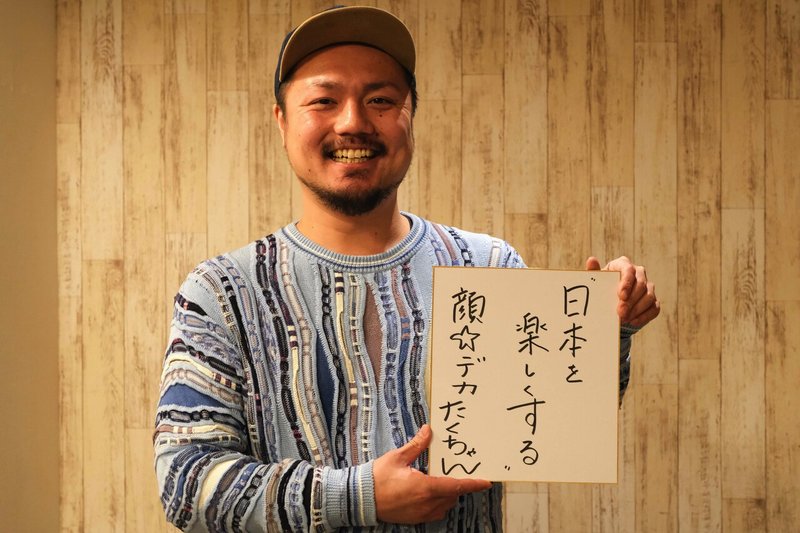 "日本を
楽しくする"
顔☆デカたくちゃん